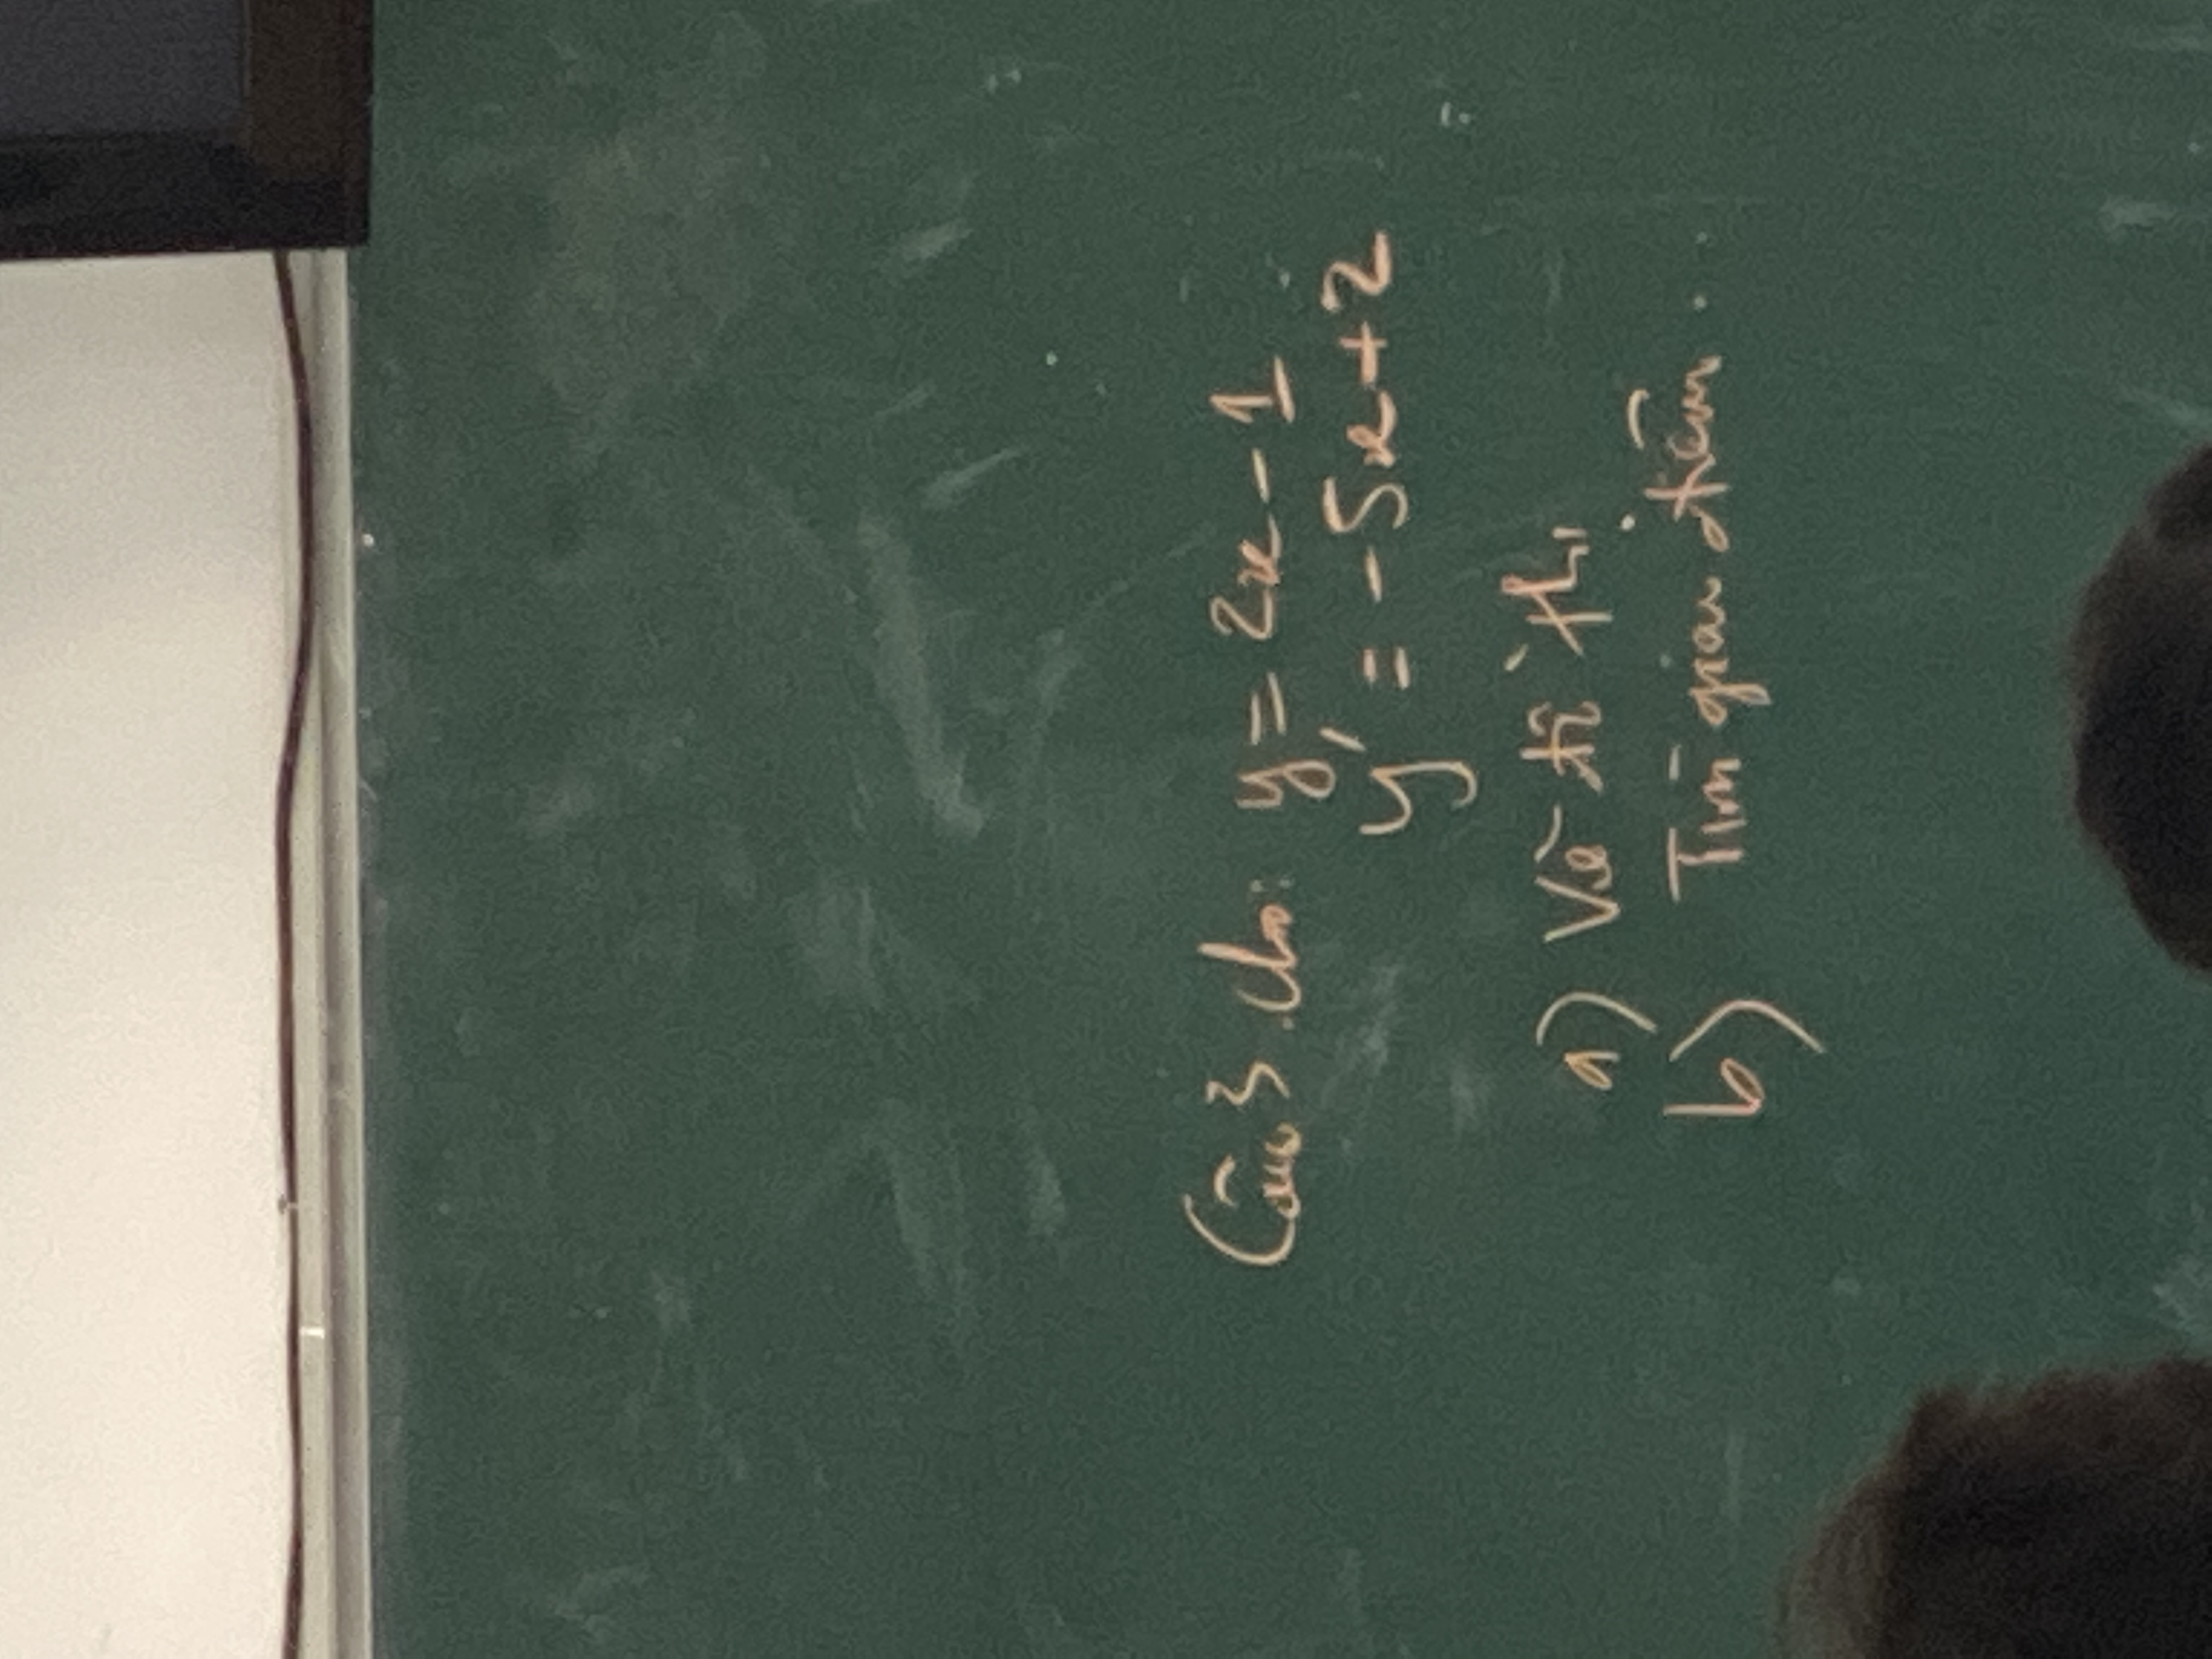 Câu 3. Cho: y = 2x - 1
y' = -5x + 2
a) Vẽ đồ thị
b) Tìm giao điểm.